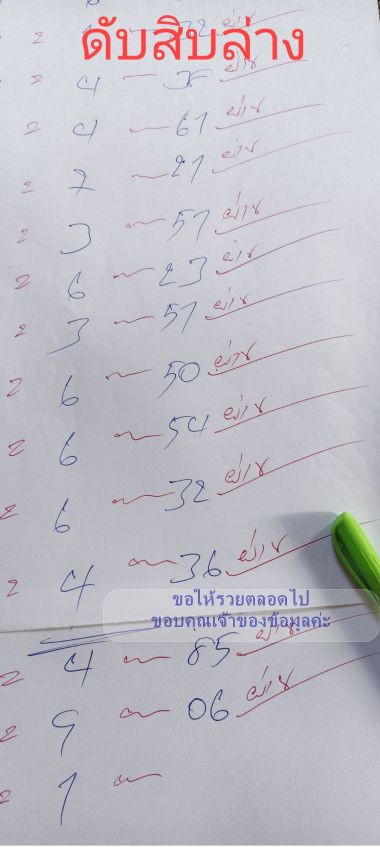 ดับสิบล่าง
2 32 ผ่าน
2 4 ~ 38 ผ่าน
2 4 ~ 61 ผ่าน
2 7 ~ 21 ผ่าน
2 3 ~ 51 ผ่าน
2 6 ~ 23 ผ่าน
2 3 ~ 51 ผ่าน
2 6 ~ 50 ผ่าน
2 6 ~ 54 ผ่าน
2 6 ~ 32 ผ่าน
2 4 ~ 36 ผ่าน
ขอให้รวยตลอดไป
ขอบคุณเจ้าของข้อมูลค่ะ
2 4 ~ 85 ผ่าน
2 9 ~ 06 ผ่าน
2 1 ~